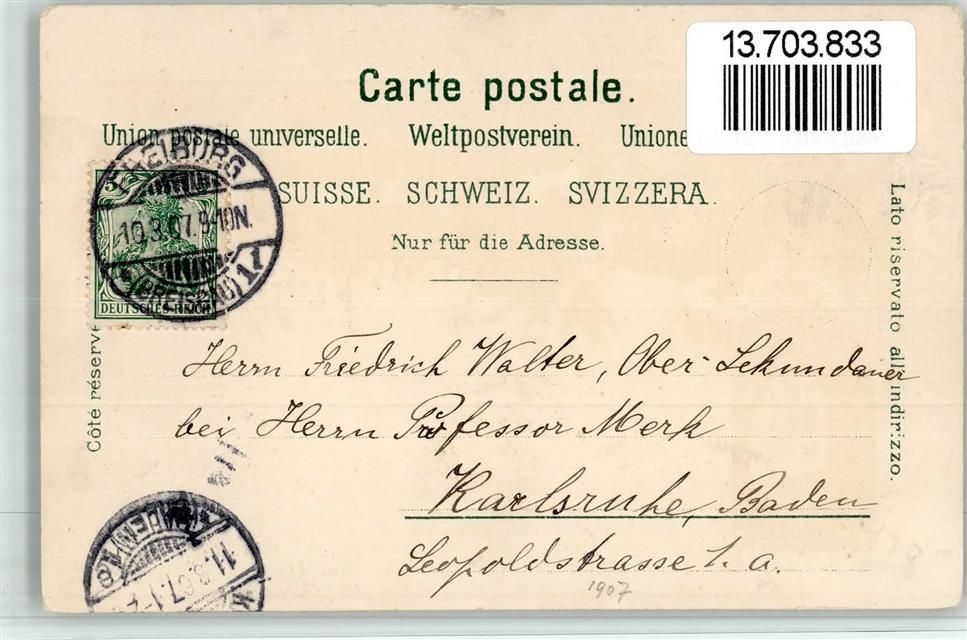 13.703.833
Carte postale.
Union postale universelle. Weltpostverein. Unione
SUISSE. SCHWEIZ. SVIZZERA.
Nur für die Adresse.
Côté réservé
Lato riservato all'indirizzo.
5
DEUTSCHES REICH
FREIBURG
10.3.07.9-10N.
(BREISGAU)
Herrn Friedrich Walter, Ober-Sekundaner
bei Herrn Professor Merk
Karlsruhe, Baden
Leopoldstrasse 1. a.
1907
11.3.07.